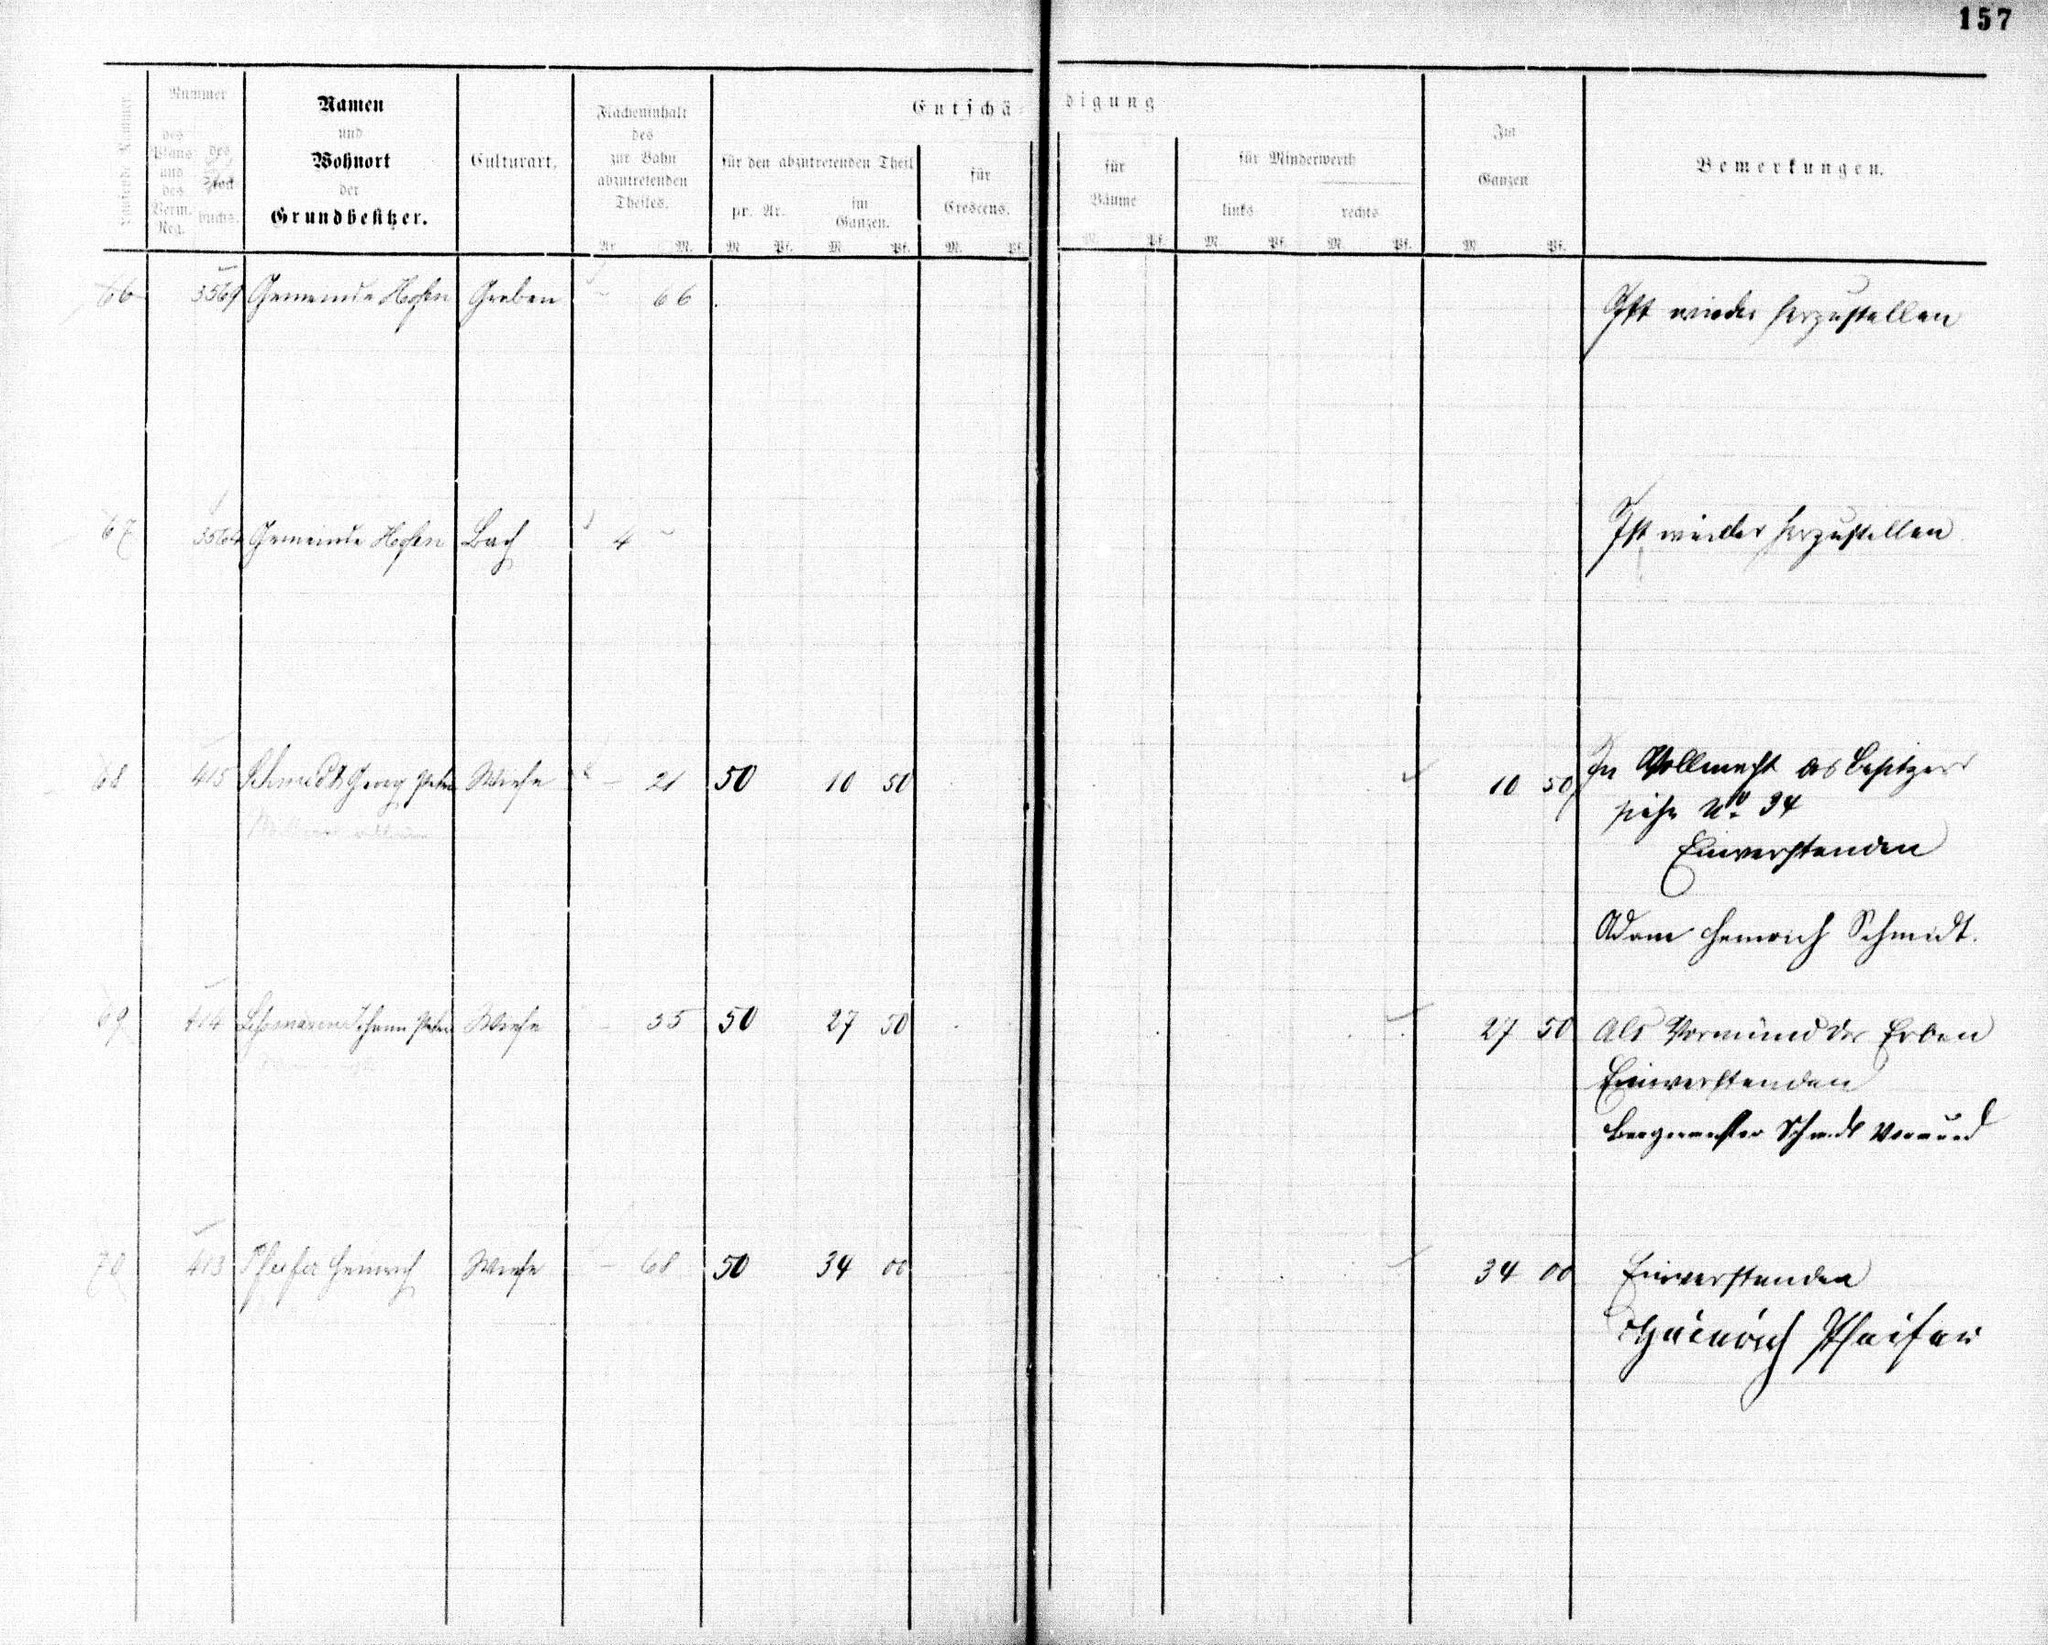 157
Entschädigung
Laufende Nummer
Nummer
des Plans und des Verm. Reg.
des Stockbuchs.
Namen
und
Wohnort
der
Grundbesitzer.
Culturart.
Flächeninhalt
des
zur Bahn
abzutretenden
Theiles.
Ar M.
für den abzutretenden Theil
pr. Ar.
M Pf.
im
Ganzen.
M. Pf.
für
Crescens.
M. Pf.
für
Bäume
M Pf.
für Minderwerth
links
M Pf.
rechts
M. Pf.
Im
Ganzen
M Pf.
Bemerkungen.
66 3569 Gemeinde Hofen Graben - 66 Ist wieder herzustellen
67 3564 Gemeinde Hofen Bach 4 - Ist wieder herzustellen
68 415 Schmidt Georg Peter Wiese - 21 50 10 50 10 50 In Vollmacht des Besitzers
siehe No 34
Einverstanden
Adam Heinrich Schmidt.
69 414 Johann Peter Wiese - 55 50 27 50 27 50 Als Vormund der Erben
Einverstanden
Bürgermeister Schmidt Vormund
70 413 Pfeifer Heinrich Wiese - 68 50 34 00 34 00 Einverstanden
Heinrich Pfeifer